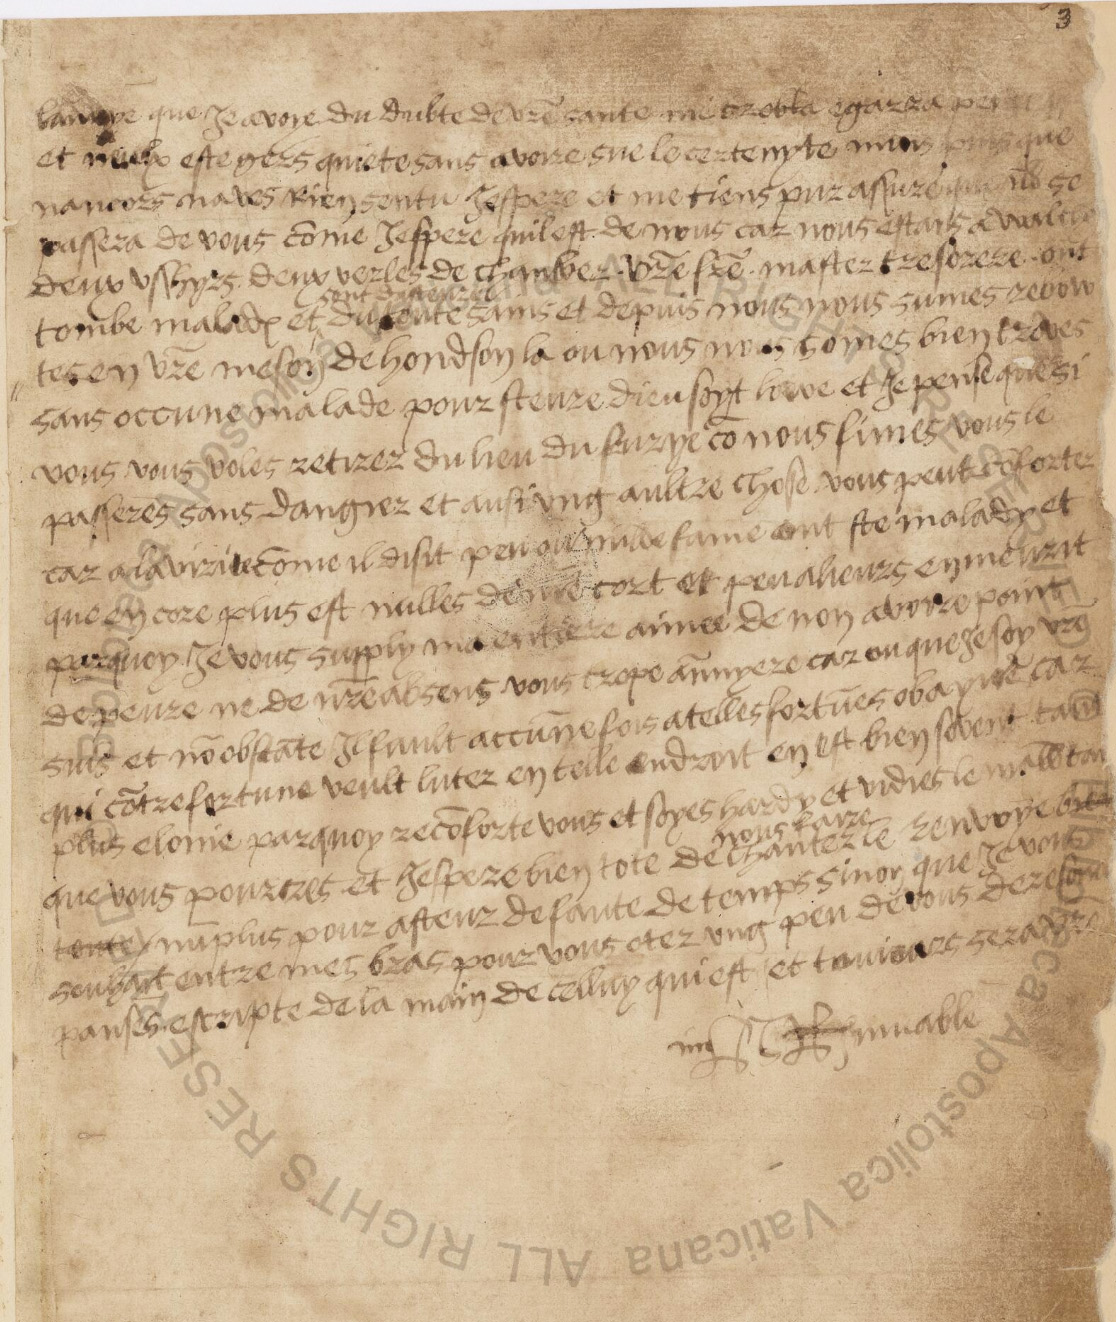 3
lannuye que Je avoye du dubte de vre sante me trobla egarra
et neulx este gers quiete sans avoire sue le certenyte mais puis que
nancors naves Rien sentu Jespere et me tiens pur assure que
passera de vous come Jespere quil est de nous car nous estans a walton
deux usshyrs deux verles de chamber vre frere master tresorere ont
sont asteure
tombe malady et du tout sains et depuis nous nous sumes rebow
tes en vre meson de hondson la ou nous nous somes bien treves
sans occune malade pour steure dieu soyt lowe et Je pense que si
vous vous voles retirer du lieu du surye come nous fimes vous le
passeres sans dangier et ausi ung aultre chose vous peut coforter
car a la virite come il disit peu ou nulle fame ont ste malady et
que en core plus est nulles de nre cort et peu alieurs en meurit
parquoy Je vous supply ma entiere aimee de non avoire point
de peure ne de nre absens vous trope annyere car ou que Je soy vre
suis et no obstate Il fault accune fois a telles fortunes obayre car
qui cotre fortune veult luter en telle endroit en est bien sovent tant
plus elonie parquoy recoforte vous et soyes hardy et vidies le mal tan
que vous pourres et Jespere bien tote de chanter le renvoye
nous faire
non plus pour asteur de faute de temps sinon que Je vous
souhait entre mes bras pour vous oter ung peu de vous deresonable
panses escripte de la main de celluy qui est et toujours sera vre
im HR muable